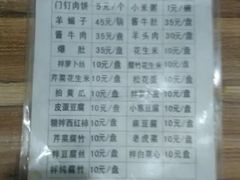 门钉肉饼 5元/个 小米粥
羊蝎子 45元/锅 酱牛肚 35元/盘
酱牛肉 35元/盘 羊头肉 30元/盘
爆肚 10元/盘 花生米 10元/盘
拌萝卜丝 10元/盘 腐竹花生米 10元/盘
芹菜花生米 10元/盘 松花蛋 10元/盘
拍黄瓜 10元/盘 拌三丝 10元/盘
皮蛋豆腐 10元/盘 小葱豆腐 10元/盘
糖拌西红柿 10元/盘 麻豆腐 10元/盘
芹菜腐竹 10元/盘 老虎菜 10元/盘
拌豆腐丝 10元/盘 拌白菜心 10元/盘
拌纯腐竹 10元/盘